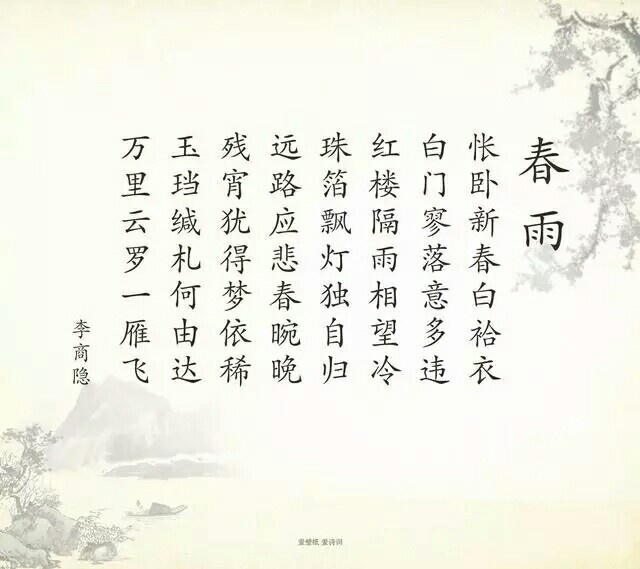 春雨
怅卧新春白袷衣
白门寥落意多违
红楼隔雨相望冷
珠箔飘灯独自归
远路应悲春晼晚
残宵犹得梦依稀
玉珰缄札何由达
万里云罗一雁飞
李商隐
爱壁纸 爱诗词